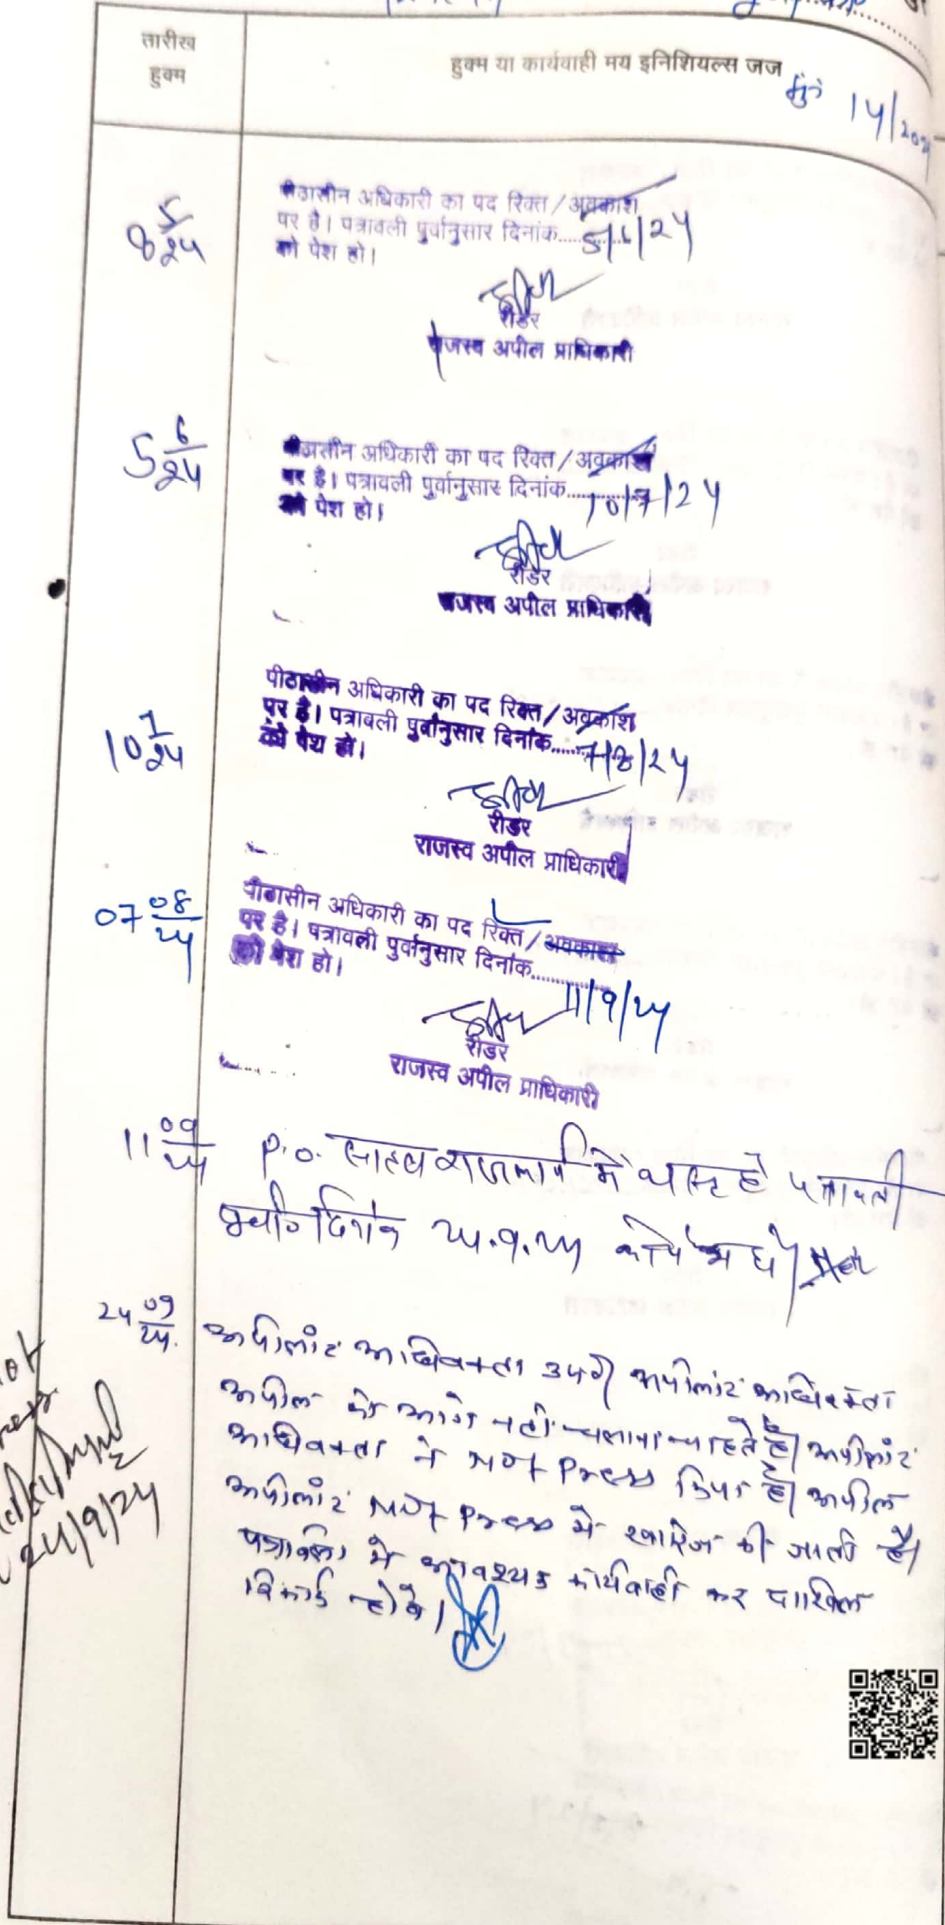 तारीख
हुक्म
हुक्म या कार्यवाही मय इनिशियल्स जज
14/202
8 5/24
पीठासीन अधिकारी का पद रिक्त/अवकाश
पर है। पत्रावली पुर्वानुसार दिनांक......5/6/24
को पेश हो।
रीडर
राजस्व अपील प्राधिकारी
5 6/24
पीठासीन अधिकारी का पद रिक्त/अवकाश
पर है। पत्रावली पुर्वानुसार दिनांक......10/7/24
को पेश हो।
रीडर
राजस्व अपील प्राधिकारी
10 7/24
पीठासीन अधिकारी का पद रिक्त/अवकाश
पर है। पत्रावली पुर्वानुसार दिनांक......7/8/24
को पेश हो।
रीडर
राजस्व अपील प्राधिकारी
07 08/24
पीठासीन अधिकारी का पद रिक्त/अवकाश
पर है। पत्रावली पुर्वानुसार दिनांक......11/9/24
को पेश हो।
रीडर
राजस्व अपील प्राधिकारी
11 09/24
P.O. साहब राजकार्य में व्यस्त है पत्रावली
दिनांक 24.9.24 को पेश हो
24 09/24.
अपीलांट अधिवक्ता उप0 अपीलांट अधिवक्ता
अपील को आगे नहीं चलाना चाहते है। अपीलांट
अधिवक्ता ने Not Press किया है। अपील
अपीलांट Not Press में खारिज की जाती है।
पत्रावली में आवश्यक कार्यवाही कर दाखिल
रिकार्ड होवे।
24/9/24